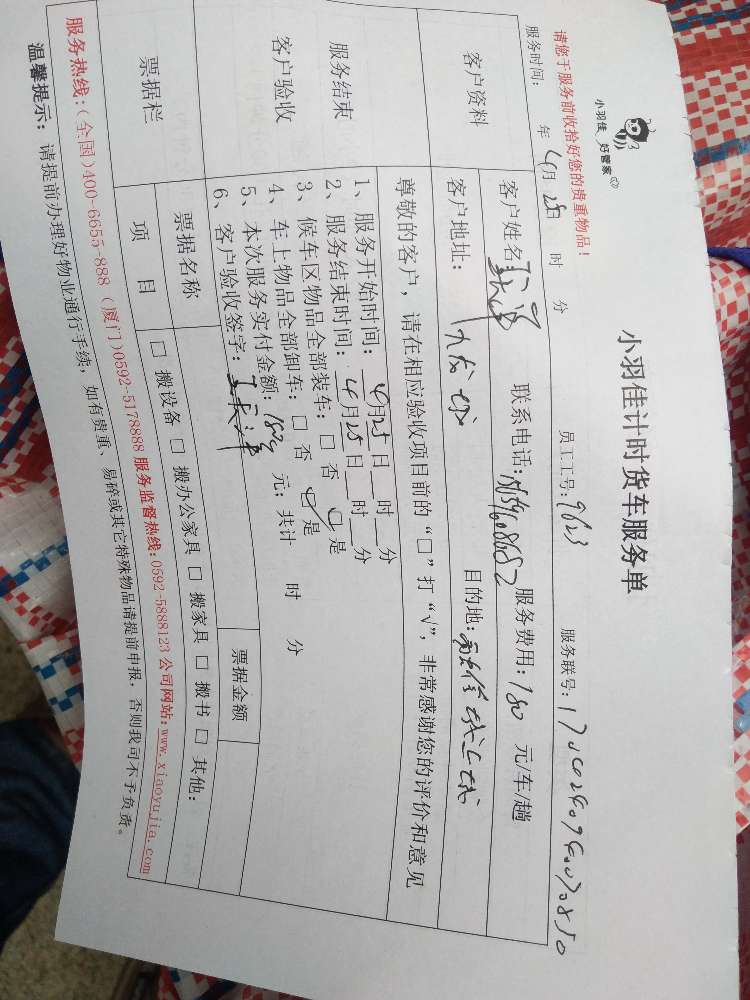 小羽佳 好管家
小羽佳计时货车服务单
请您于服务前收拾好您的贵重物品！
服务时间： 年 4月 28日 时 分 员工工号：9623 服务联号：
客户资料
客户姓名 联系电话： 服务费用：180 元/车/趟
客户地址： 目的地：
服务结束
客户验收
尊敬的客户，请在相应验收项目前的“□”打“√”，非常感谢您的评价和意见
1、服务开始时间：4月25日 时 分
2、服务结束时间：4月25日 时 分
3、候车区物品全部装车：□ 否 □ 是
4、车上物品全部卸车：□ 否 □ 是
5、本次服务实付金额：180 元；共计 时 分
6、客户验收签字：
票据栏
票据名称 票据金额
项 目 □ 搬设备 □ 搬办公家具 □ 搬家具 □ 搬书 □ 其他：
服务热线：(全国)400-6655-888 (厦门)0592-5178888 服务监督热线:0592-5888123 公司网站:www.xiaoyujia.com
温馨提示：请提前办理好物业通行手续，如有贵重、易碎或其它特殊物品请提前申报，否则我司不予负责。